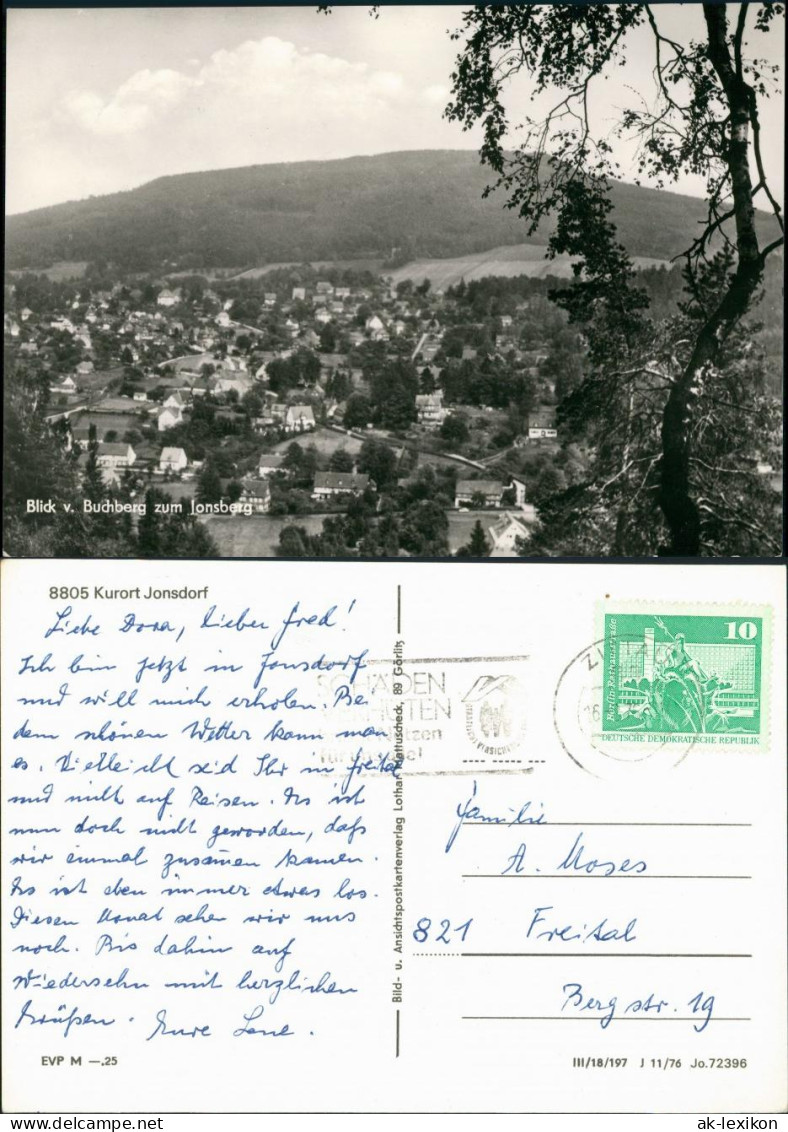 Blick v. Buchberg zum Jonsberg
8805 Kurort Jonsdorf
Liebe Dora, lieber Fred!
Ich bin jetzt in Jonsdorf
und will mich erholen. Bei
dem schönen Wetter kann man
es. Vielleicht seid Ihr in Freital
und nicht auf Reisen. Es ist
nun doch nicht geworden, daß
wir einmal zusammen kamen.
Es ist eben immer etwas los.
Diesen Monat sehen wir uns
noch. Bis dahin auf
Wiedersehn mit herzlichen
Grüßen. Eure Lene.
EVP M —,25
Bild- u. Ansichtspostkartenverlag Lothar Mattuscheck, 89 Görlitz
SCHÄDEN
VERHÜTEN
10
Berlin-Rathausstraße
DEUTSCHE DEMOKRATISCHE REPUBLIK
Familie
A. Moses
821 Freital
Bergstr. 19
III/18/197 J 11/76 Jo.72396
ak-lexikon